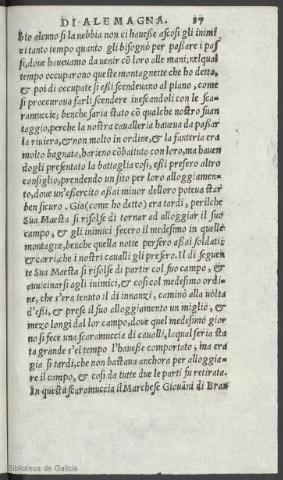 DI ALEMAGNA. 87
sto alcuno si la nebbia non ci hauesse ascosi gli inimi
ci tanto tempo quanto gli bisognò per passare i pas
si, doue haueuamo da venir cō loro alle mani; nel qual
tempo occuparono queste montagnette che ho detto,
& poi di occupate si essi scendeuano al piano, come
si proccuraua farli scendere inescandoli con le sca-
ramuccie; benche saria stato cō qualche nostro suan
taggio, perche la nostra caualleria haueua da passar
la riuiera, & non molto in ordine, & la fanteria era
molto bagnata, harieno cōbattuto con loro, ma hauen
dogli presentato la battaglia cosi, essi presero altro
consiglio, prendendo un sito per loro alloggiamen-
to, doue un'essercito assai minor delloro poteua star
ben sicuro. Gia (come ho detto) era tardi, perilche
Sua Maesta si risolse di tornar ad alloggiar il suo
campo, & gli inimici fecero il medesimo in quelle
montagne, benche quella notte persero assai soldati;
& carri, che i nostri caualli gli presero. Il di seguen
te Sua Maesta si risolse di partir col suo campo, &
auuicinarsi agli inimici, & cosi col medesimo ordi-
ne, che s'era tenuto il di innanzi, caminò alla uolta
d'essi, & prese il suo alloggiamento un miglio, &
mezo longi dal lor campo, doue quel medesimo gior
no si fece una scaramuccia di caualli, la qual seria sta
ta grande s'el tempo l'hauesse comportato, ma era
gia si tardi, che non bastaua anchora per alloggia-
re il campo, & cosi da tutte due le parti fu retirata.
In questa scaramuccia il Marchese Giouāni di Bran
Biblioteca de Galicia